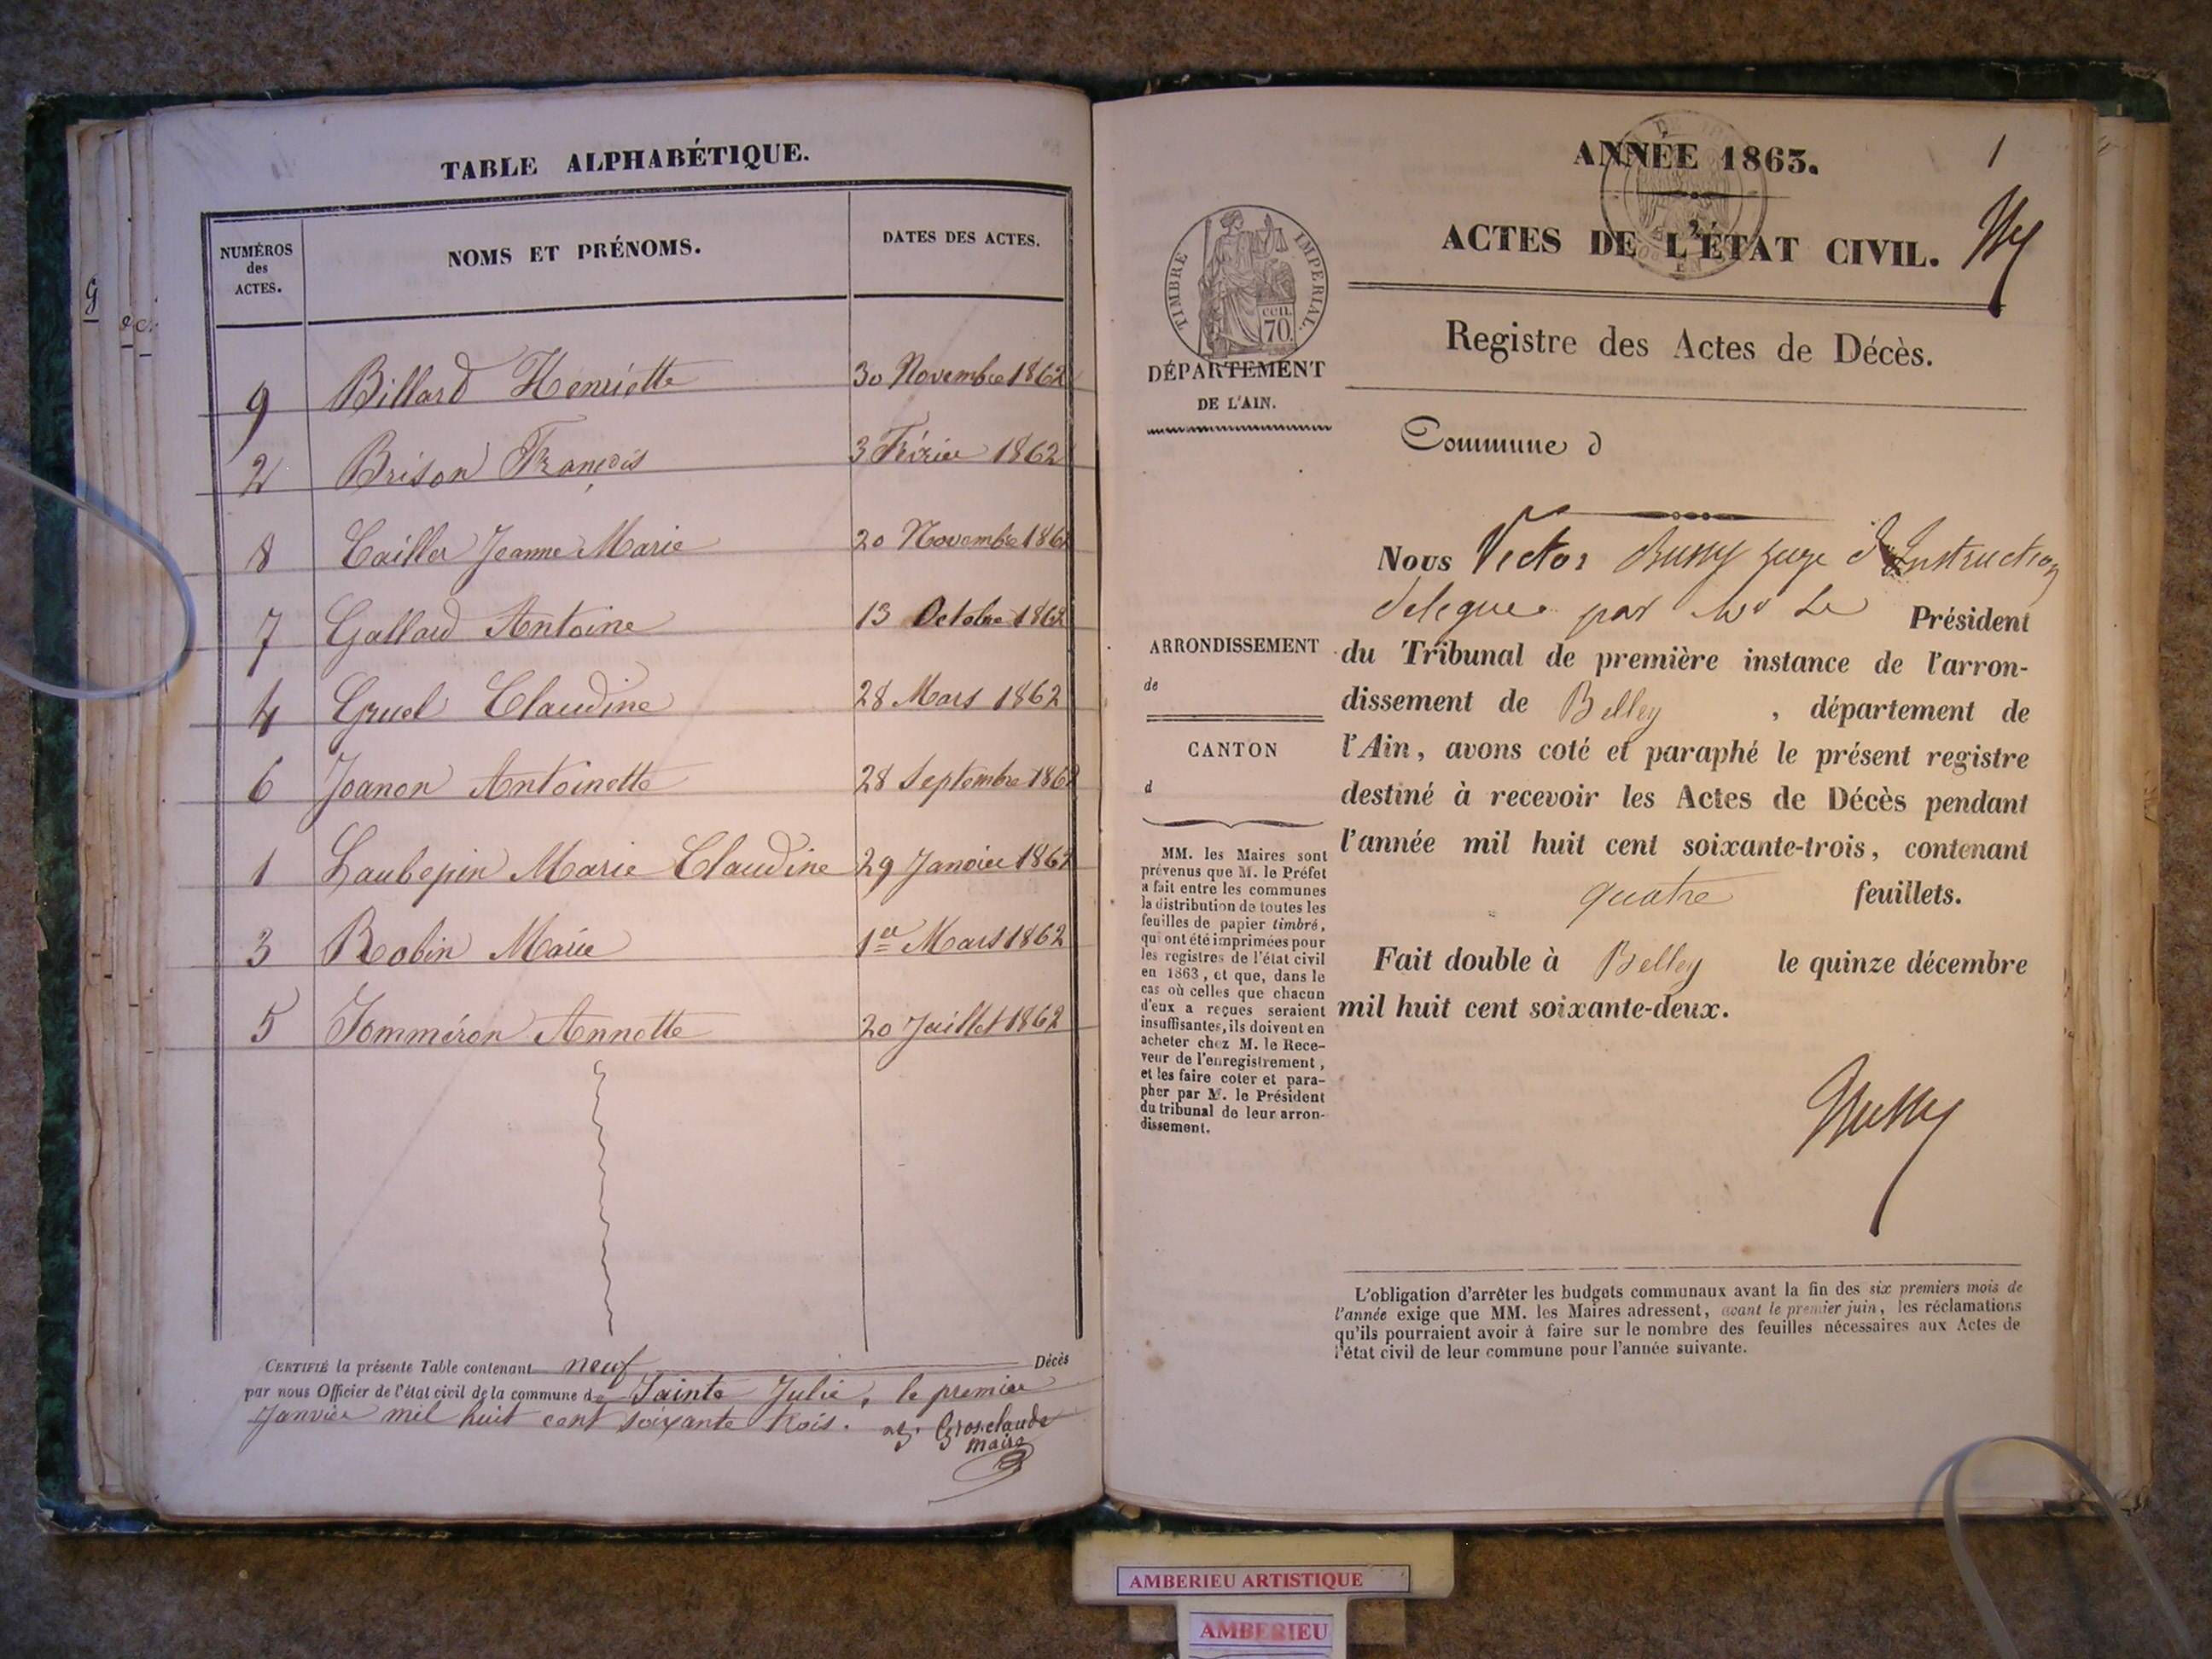 TABLE ALPHABÉTIQUE.
NUMÉROS
des
ACTES.
NOMS ET PRÉNOMS.
DATES DES ACTES.
9 Billard Henriette 30 Novembre 1862
2 Brison François 3 Février 1862
8 Cailler Jeanne Marie 20 Novembre 1862
7 Gallard Antoine 13 Octobre 1862
4 Gruel Claudine 28 Mars 1862
6 Joanon Antoinette 28 Septembre 1862
1 Laubepin Marie Claudine 29 Janvier 1862
3 Robin Marie 1er Mars 1862
5 Tomméron Annette 20 Juillet 1862
CERTIFIÉ la présente Table contenant neuf Décès
par nous Officier de l'état civil de la commune de Sainte Julie, le premier
Janvier mil huit cent soixante trois. Grosclaude
maire
1
ANNÉE 1863.
ACTES DE L'ÉTAT CIVIL.
TIMBRE IMPERIAL.
cen.
70.
Registre des Actes de Décès.
DÉPARTEMENT
DE L'AIN.
Commune d
Nous Victor Bussy juge d'Instruction
délégué par Mr Le Président
ARRONDISSEMENT
de
CANTON
d
du Tribunal de première instance de l'arron-
dissement de Belley , département de
l'Ain, avons coté et paraphé le présent registre
destiné à recevoir les Actes de Décès pendant
l'année mil huit cent soixante-trois, contenant
quatre feuillets.
Fait double à Belley le quinze décembre
mil huit cent soixante-deux.
Bussy
MM. les Maires sont
prévenus que M. le Préfet
a fait entre les communes
la distribution de toutes les
feuilles de papier timbré,
qui ont été imprimées pour
les registres de l'état civil
en 1863, et que, dans le
cas où celles que chacun
d'eux a reçues seraient
insuffisantes, ils doivent en
acheter chez M. le Rece-
veur de l'enregistrement,
et les faire coter et para-
pher par M. le Président
du tribunal de leur arron-
dissement.
L'obligation d'arrêter les budgets communaux avant la fin des six premiers mois de
l'année exige que MM. les Maires adressent, avant le premier juin, les réclamations
qu'ils pourraient avoir à faire sur le nombre des feuilles nécessaires aux Actes de
l'état civil de leur commune pour l'année suivante.
AMBERIEU ARTISTIQUE
AMBERIEU